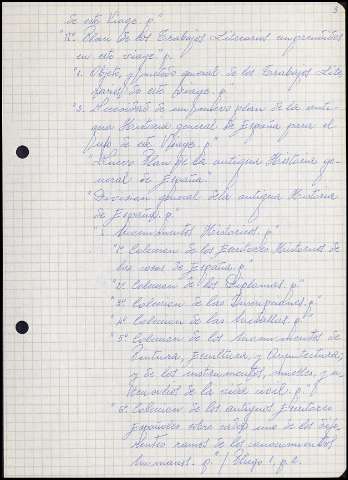 3
de este Viage. p."
"IIº Plan de los Trabajos Literarios emprendidos
en este viage" p.
"1. Objeto, y metodo general de los Trabajos Lite
rarios de este Viage. p.
"2. Necesidad de un nuevo plan de la anti-
gua Historia general de España para el
uso de este Viage. p."
"Nuevo Plan de la antigua Historia ge-
neral de España".
"Division general de la antigua Historia
de España. p."
"I Monumentos Historicos. p."
"1º Coleccion de los Escritores Historicos de
las cosas de España. p."
"2º Coleccion de los Diplomas. p."
"3º Coleccion de las Inscripciones. p."
"4º Coleccion de las Medallas. p."
"5º Coleccion de los Monumentos de
Pintura, Escultura, y Arquitectura;
y de los instrumentos, muebles, y u
tensilios de la vida civil. p."
"6º Coleccion de los antiguos Escritores
Españoles sobre cada uno de los dife
rentes ramos de los conocimientos
humanos. p." / Pliego 1, p. 2.